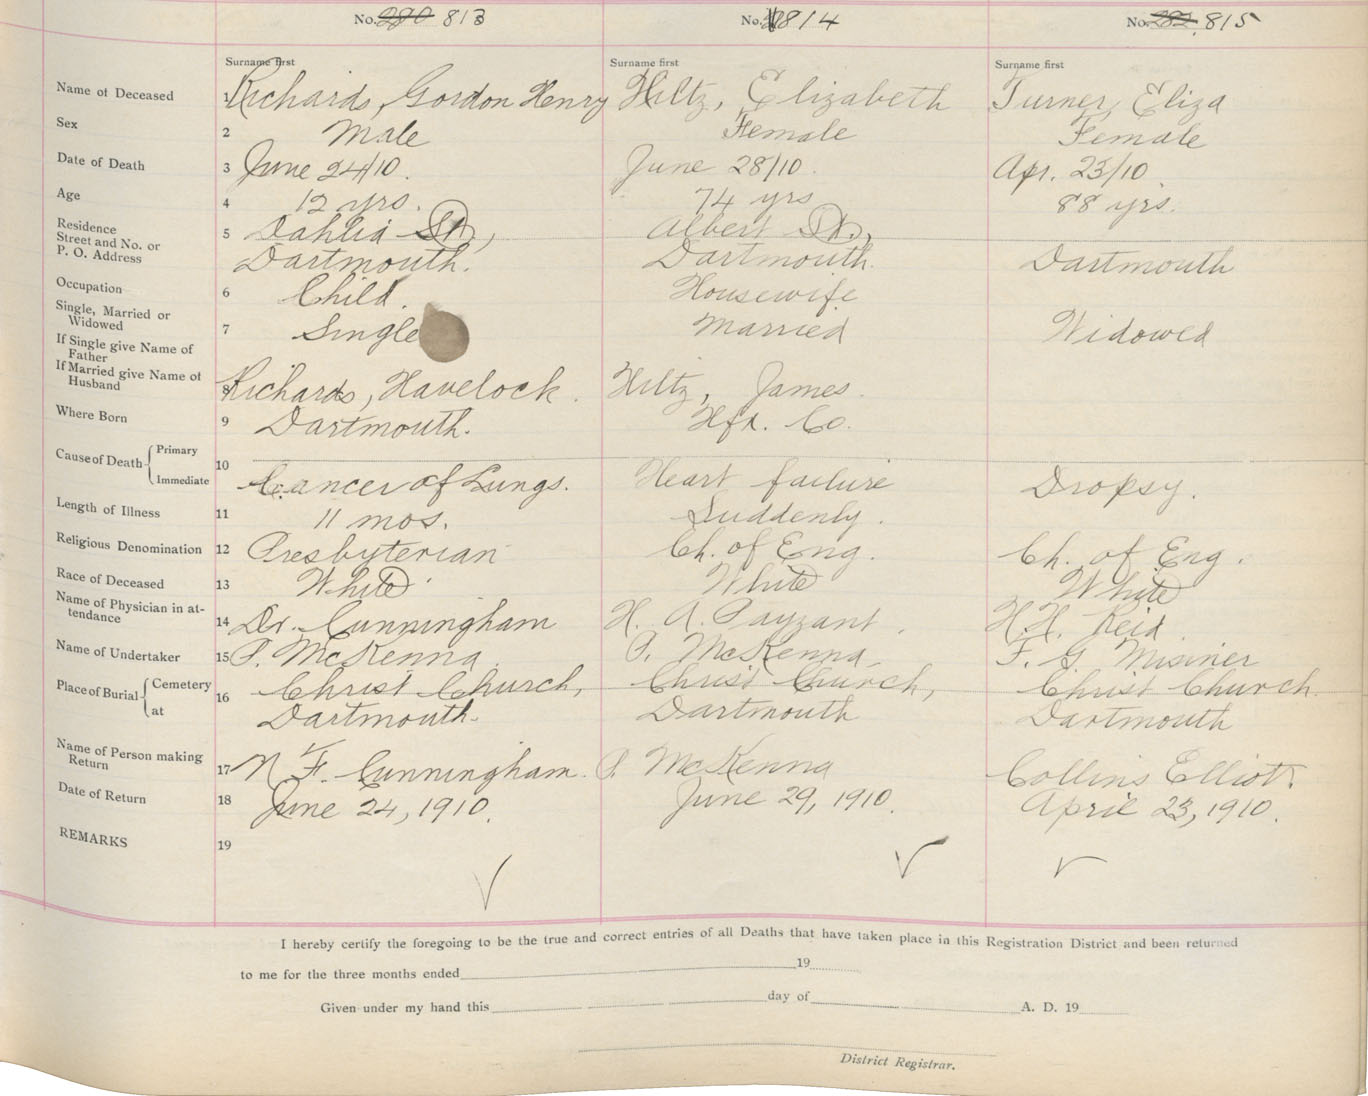 No. 280 813
No. 814
No. 282. 815
Surname first
Surname first
Surname first
Name of Deceased 1 Richards, Gordon Henry Hiltz, Elizabeth Turner, Eliza
Sex 2 Male Female Female
Date of Death 3 June 24/10. June 28/10. Apr. 23/10
Age 4 12 yrs. 74 yrs 88 yrs.
Residence
Street and No. or 5 Dahlia St, Albert St.,
P. O. Address Dartmouth. Dartmouth. Dartmouth
Occupation 6 Child. Housewife
Single, Married or
Widowed 7 Single Married Widowed
If Single give Name of
Father
If Married give Name of
Husband 8 Richards, Havelock. Hiltz, James.
Where Born 9 Dartmouth. Hfx. Co.
Cause of Death Primary
Immediate 10 Cancer of Lungs. Heart failure Dropsy.
Length of Illness 11 11 mos. Suddenly.
Religious Denomination 12 Presbyterian Ch. of Eng. Ch. of Eng.
Race of Deceased 13 White White White
Name of Physician in at-
tendance 14 Dr. Cunningham H. A. Payzant. H. H. Reid.
Name of Undertaker 15 P. McKenna. P. McKenna. F. G. Misiner
Place of Burial Cemetery 16 Christ Church, Christ Church, Christ Church.
at Dartmouth. Dartmouth Dartmouth
Name of Person making
Return 17 N. F. Cunningham. P. McKenna Collins Elliot.
Date of Return 18 June 24, 1910. June 29, 1910. April 23, 1910.
REMARKS 19
I hereby certify the foregoing to be the true and correct entries of all Deaths that have taken place in this Registration District and been returned
to me for the three months ended 19
Given under my hand this day of A. D. 19
District Registrar.